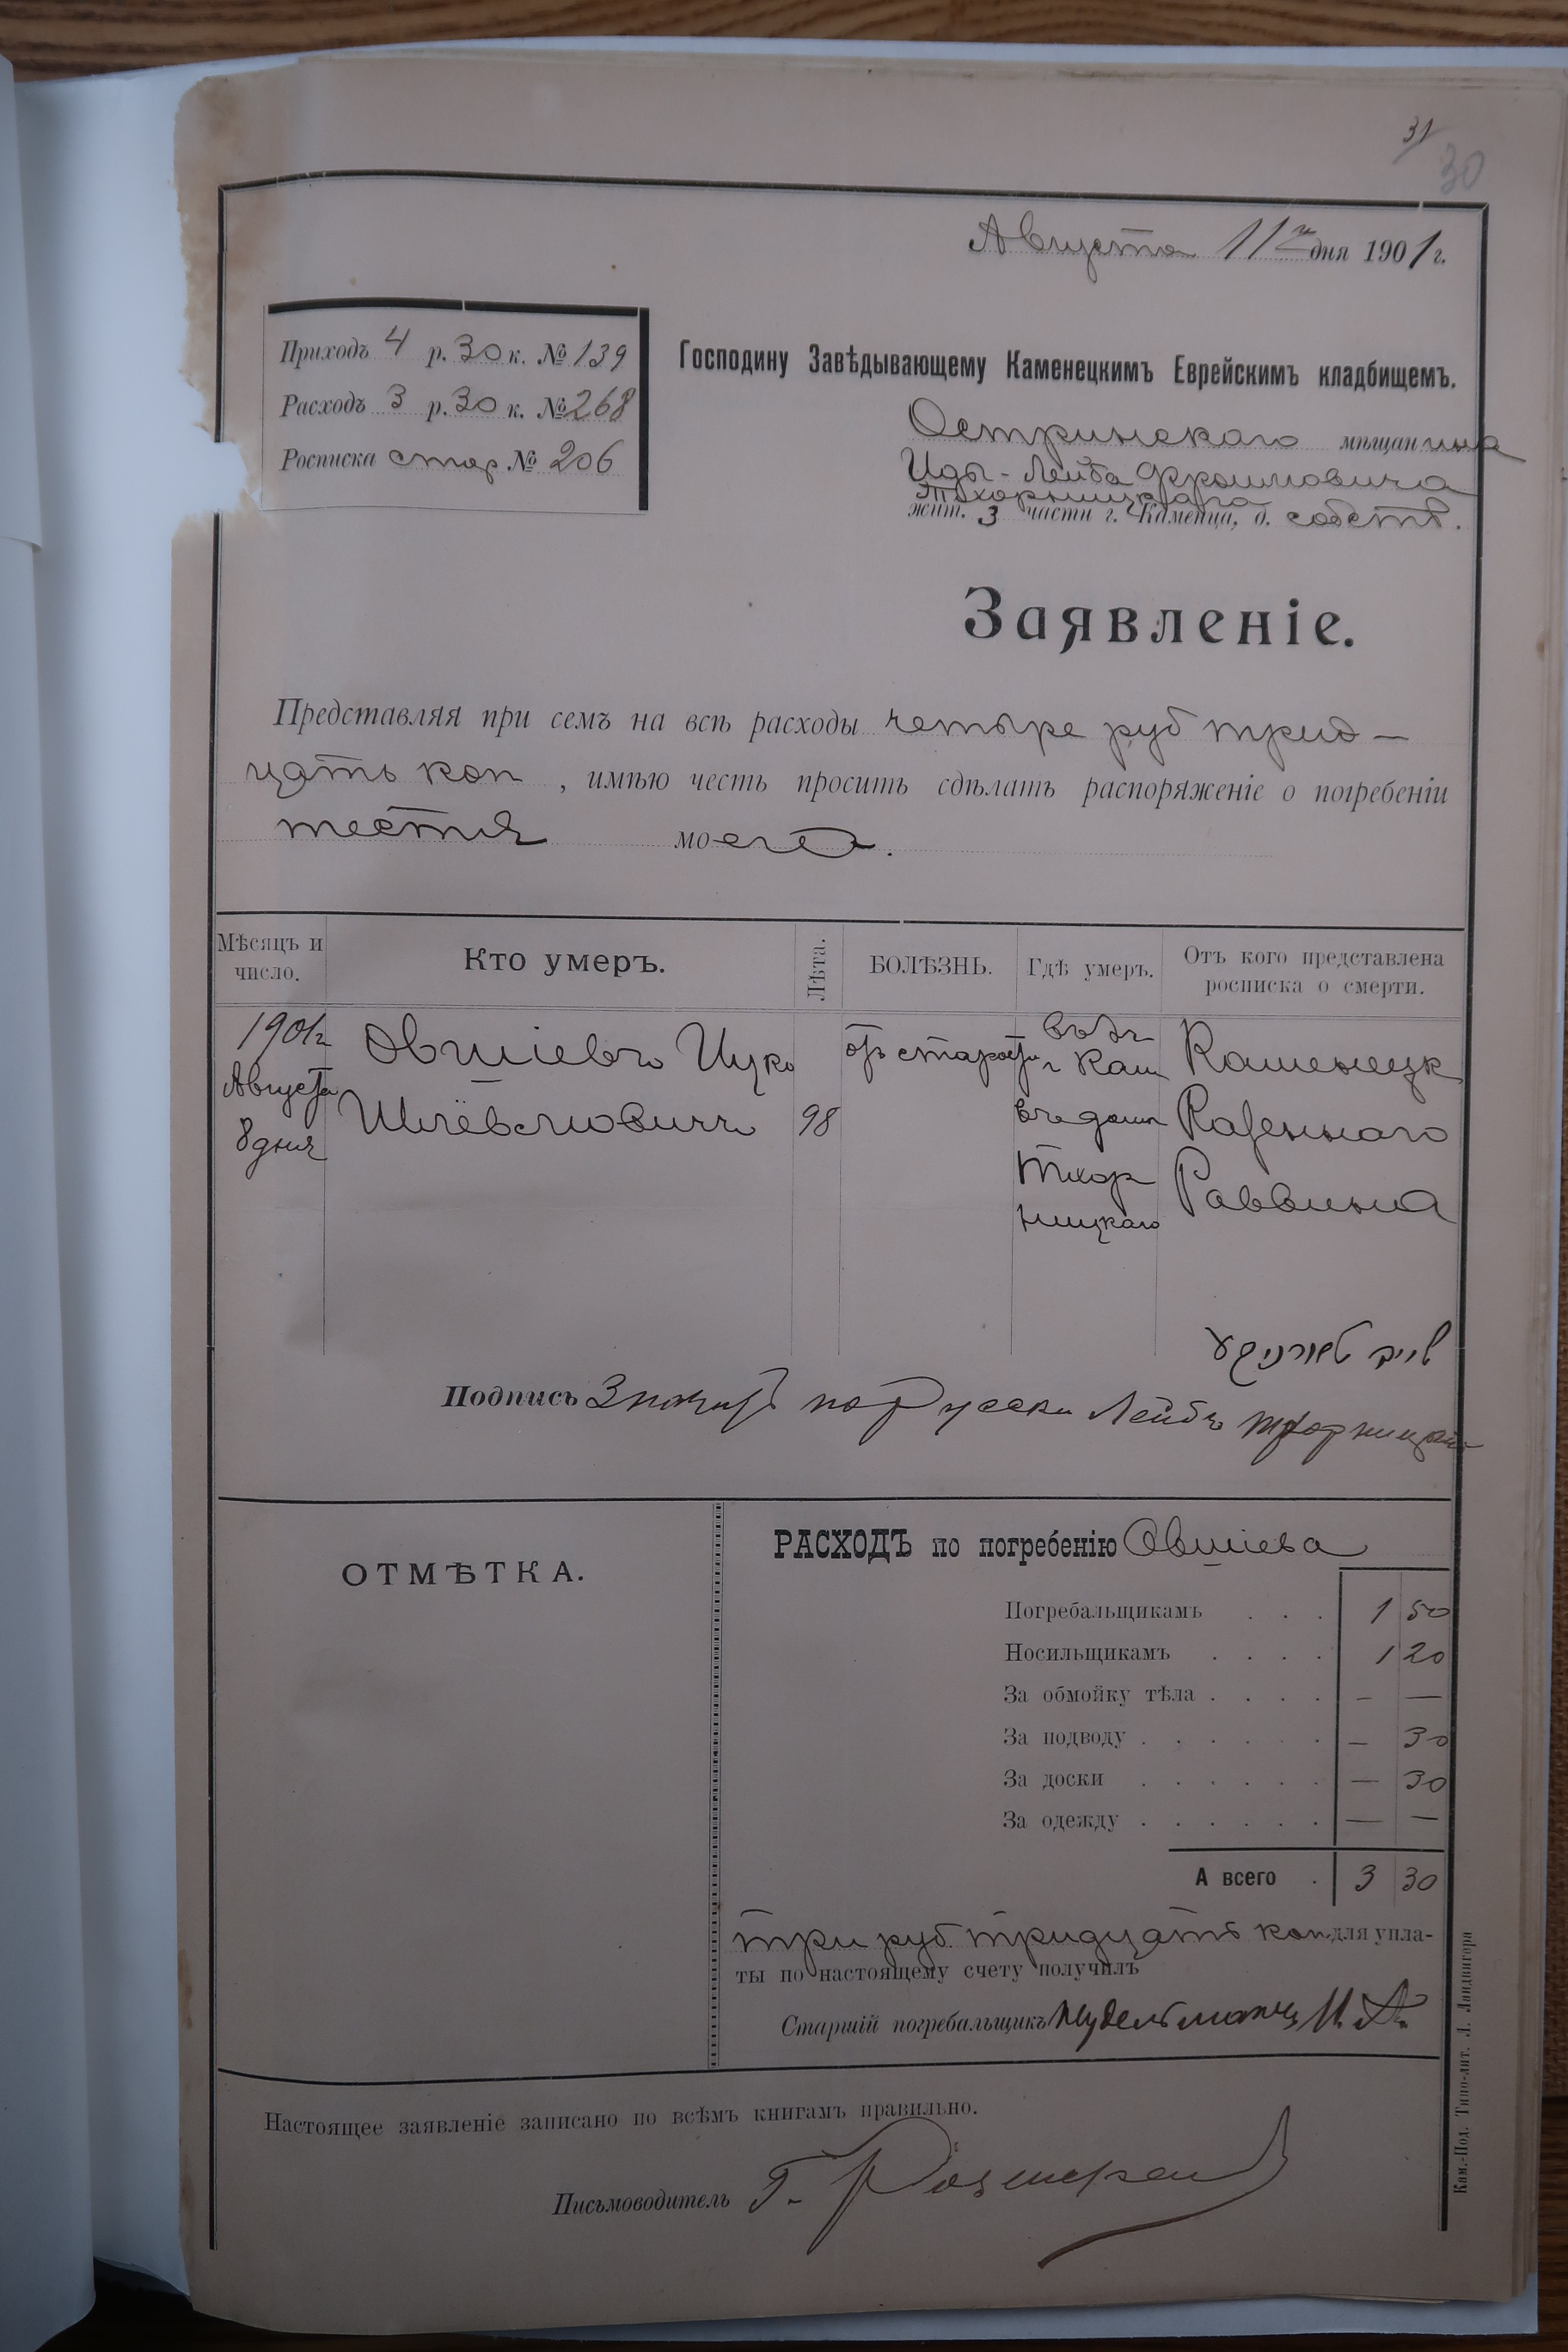 31
30
Августа 11го дня 1901 г.
Приходъ 4 р. 30 к. № 139
Расходъ 3 р. 30 к. № 268
Росписка стор № 206
Господину Завѣдывающему Каменецкимъ Еврейскимъ кладбищемъ.
Остринскаго мѣщанина
Иды-Лейба
жит. 3 части г. Каменца, д. собств.
Заявленіе.
Представляя при семъ на всѣ расходы четыре руб трид-
цать коп, имѣю честь просить сдѣлать распоряженіе о погребеніи
тестя моего.
Мѣсяцъ и число.
Кто умеръ.
Лѣта.
БОЛѢЗНЬ.
Гдѣ умеръ.
Отъ кого представлена росписка о смерти.
1901г
Августа
8 дня
Овшіевъ Ицко
98
отъ старости
г Кам
въ домѣ
Тхор
ницкаго
Каменецк
Казеннаго
Раввина
לייב
Подпись по Русски Лейбъ Тхорницкій
ОТМѢТКА.
РАСХОДЪ по погребенію Овшіева
Погребальщикамъ . . . 1 50
Носильщикамъ . . . . 1 20
За обмойку тѣла . . . . – —
За подводу . . . . . . – 30
За доски . . . . . . — 30
За одежду . . . . . . — —
А всего . 3 30
три руб тридцать коп для упла-
ты по настоящему счету получилъ
Старшій погребальщикъ Нудельманъ
Настоящее заявленіе записано по всѣмъ книгамъ правильно.
Письмоводитель Г.
Кам.-Под. Типо-лит. Л. Ландвигера